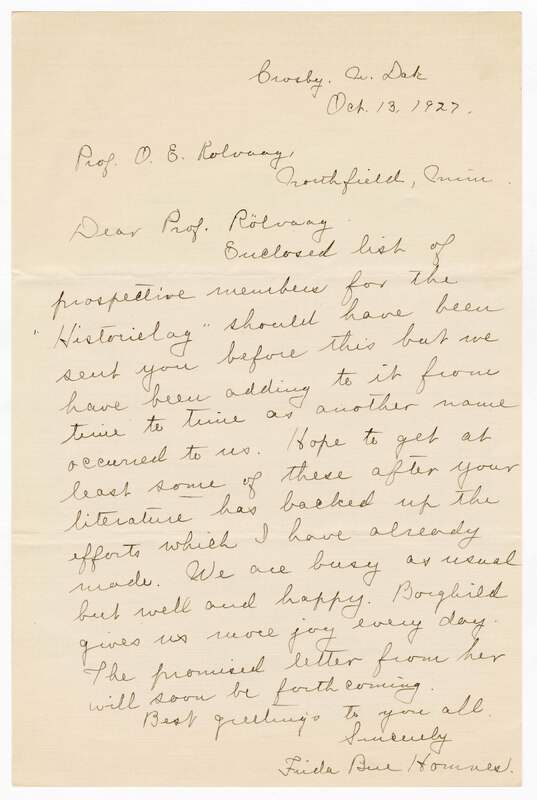 Crosby, N. Dak
Oct. 13, 1927.
Prof. O. E. Rolvaag
Northfield, Minn.
Dear Prof. Rölvaag
Enclosed list of
prospective members for the
"Historielag" should have been
sent you before this but we
have been adding to it from
time to time as another name
occurred to us. Hope to get at
least some of these after your
literature has backed up the
efforts which I have already
made. We are busy as usual
but well and happy. Borghild
gives us more joy every day.
The promised letter from her
will soon be forthcoming.
Best greetings to you all.
Sincerely
Frida Bue Homnes.